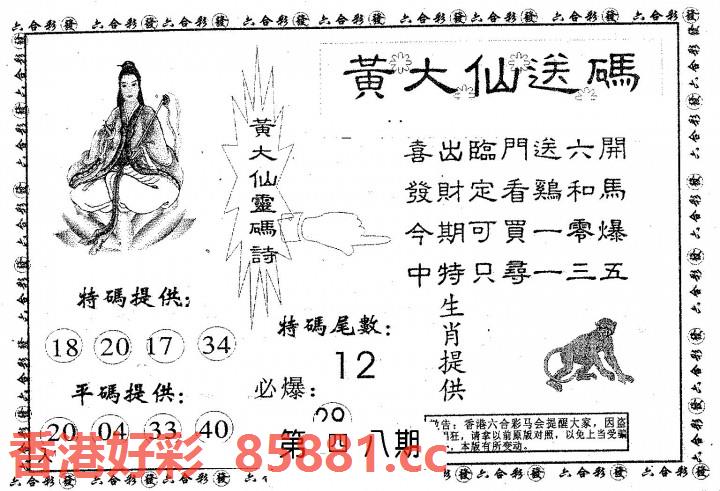 六合彩發 六合彩發 六合彩發 六合彩發 六合彩發 六合彩發 六合彩發 六合彩發 六合彩發 六合彩發
黃大仙送碼
黃大仙靈碼詩
喜出臨門送六開
發財定看鷄和馬
今期可買一零爆
中特只尋一三五
特碼提供：
18 20 17 34
平碼提供：
20 04 33 40
特碼尾數：
12
必爆：
29
第四八期
生肖提供
告：香港六合彩马会提醒大家，因盗
狂，请拿以前原版对照，以免上当受骗
，本版有所变动。
香港好彩 85881.cc